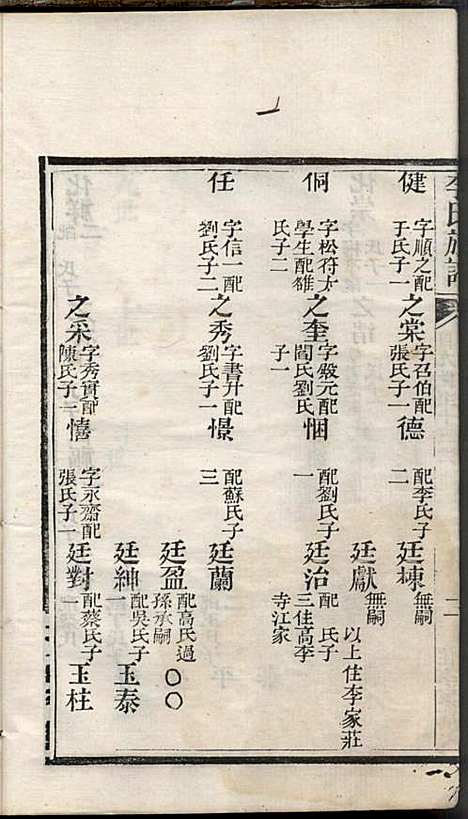 李氏族譜
健 字順之配于氏子一 之棠 字召伯配張氏子一 德 配李氏子二 廷棟 無嗣
廷獻 無嗣 以上住李家莊
侗 字松符太學生配雒氏子二 之奎 字殿元配閻氏劉氏子一 悃 配劉氏子一 廷治 配 氏子三住高李寺江家
任 字信一配劉氏子二 之秀 字書升配劉氏子一 憬 配蘇氏子三 廷蘭
廷盈 配高氏過孫承嗣 〇〇
廷紳 配吳氏子一 玉泰
之采 字秀實配陳氏子一 憘 字永齋配張氏子一 廷對 配蔡氏子一 玉柱